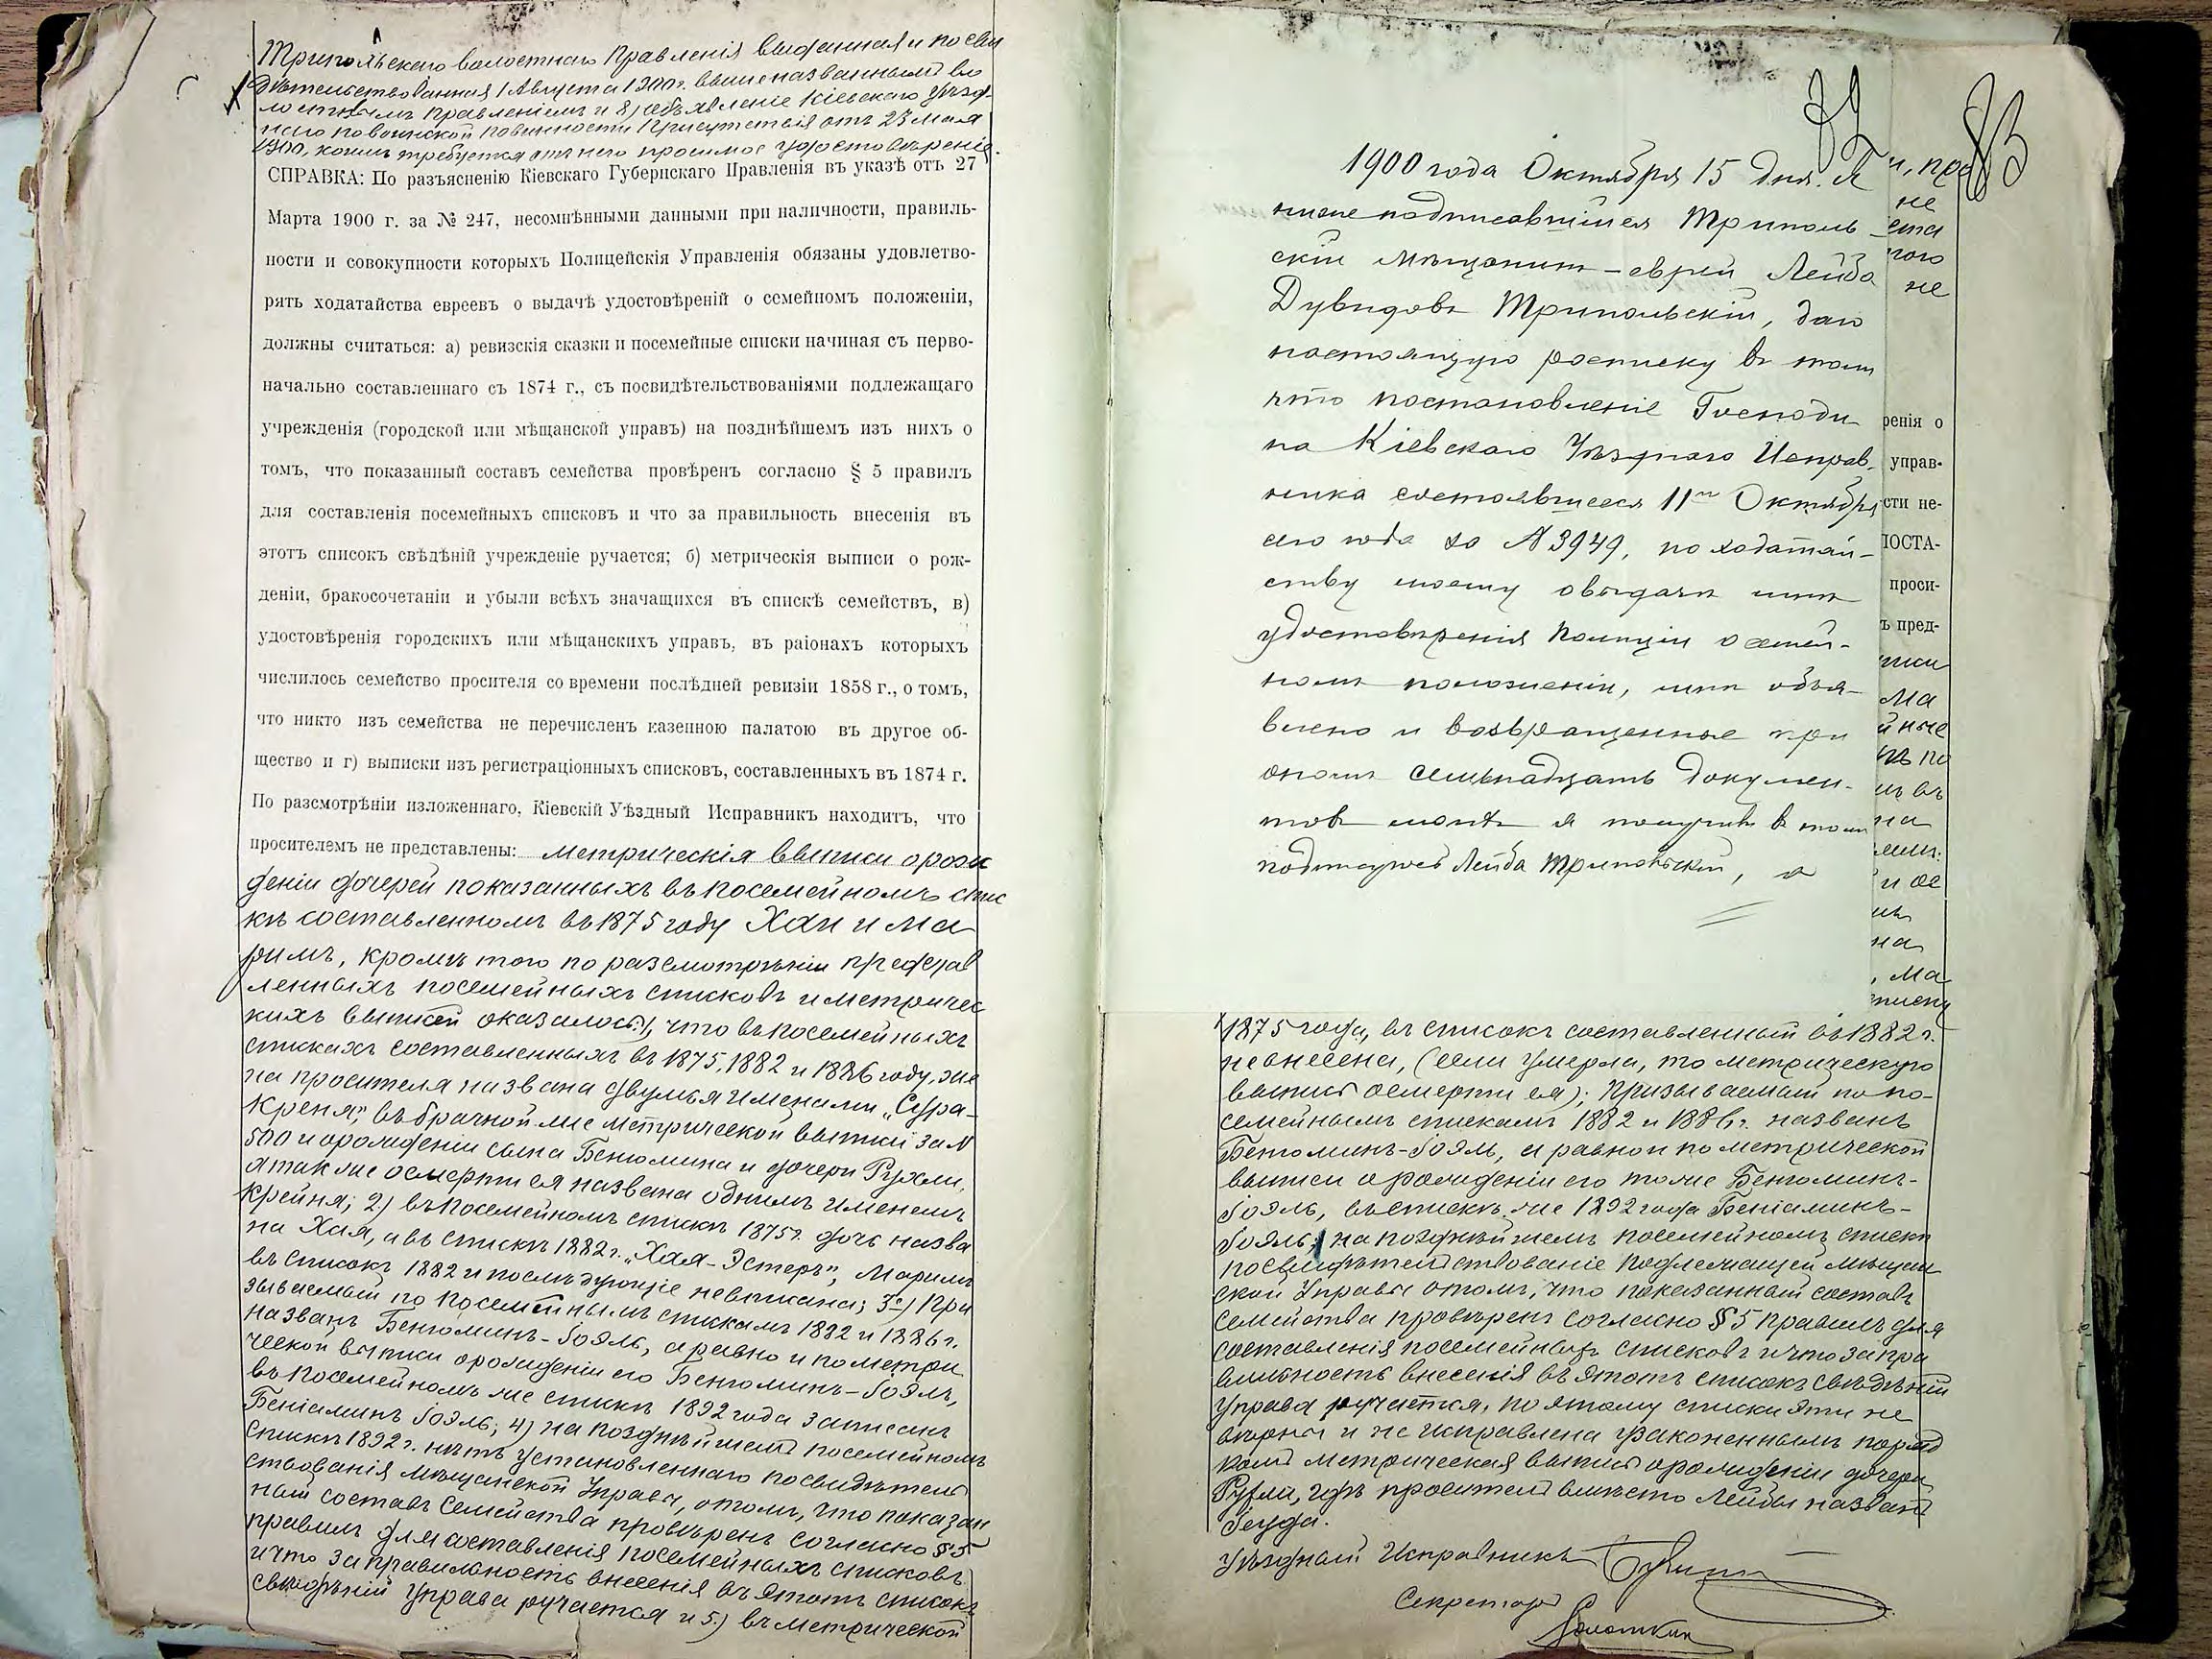 Трипольскаго волостнаго Правленія выданная и посви
дѣтельствованная 1 Августа 1900 г. вышеназваннымъ во
лостнымъ Правленіемъ и 8) объявленіе Кіевскаго Уѣзд-
наго по воинской повинности Присутствія отъ 23 Мая
1900, коимъ требуется отъ него просимое удостовѣреніе.
СПРАВКА: По разъясненію Кіевскаго Губернскаго Правленія въ указѣ отъ 27
Марта 1900 г. за № 247, несомнѣнными данными при наличности, правиль-
ности и совокупности которыхъ Полицейскія Управленія обязаны удовлетво-
рять ходатайства евреевъ о выдачѣ удостовѣреній о семейномъ положеніи,
должны считаться: а) ревизскія сказки и посемейные списки начиная съ перво-
начально составленнаго съ 1874 г., съ посвидѣтельствованіями подлежащаго
учрежденія (городской или мѣщанской управъ) на позднѣйшемъ изъ нихъ о
томъ, что показанный составъ семейства провѣренъ согласно § 5 правилъ
для составленія посемейныхъ списковъ и что за правильность внесенія въ
этотъ списокъ свѣдѣній учрежденіе ручается; б) метрическія выписи о рож-
деніи, бракосочетаніи и убыли всѣхъ значащихся въ спискѣ семействъ, в)
удостовѣренія городскихъ или мѣщанскихъ управъ, въ раіонахъ которыхъ
числилось семейство просителя со времени послѣдней ревизіи 1858 г., о томъ,
что никто изъ семейства не перечисленъ казенною палатою въ другое об-
щество и г) выписки изъ регистраціонныхъ списковъ, составленныхъ въ 1874 г.
По разсмотрѣніи изложеннаго, Кіевскій Уѣздный Исправникъ находитъ, что
просителемъ не представлены: метрическія выписи о рож
деніи дочерей показанныхъ въ посемейномъ спис
кѣ составленномъ въ 1875 году Хаи и Ма
римъ, кромѣ того по разсмотрѣніи представ
ленныхъ посемейныхъ списковъ и метричес
кихъ выписей оказалось: 1) что въ посемейныхъ
спискахъ составленныхъ въ 1875, 1882 и 1886 году, же
на просителя названа двумя именами „Сура-
Креня", въ брачной же метрической выписи за №
500 и о рожденіи сына Бенюмина и дочери Рухли,
а так же о смерти ея названа однимъ именемъ
Крейня; 2) въ посемейномъ спискѣ 1875 г. дочь назва
на Хая, а въ спискѣ 1882 г. „Хая-Эстеръ", Маримъ
въ списокъ 1882 и послѣдующіе не вписана; 3) При
зываемый по посемейнымъ спискамъ 1882 и 1886 г.
названъ Бенюминъ-Іоэль, а равно и по метри
ческой выписи о рожденіи его Бенюминъ-Іоэль,
въ посемейномъ же спискѣ 1892 года записанъ
Беніаминъ Іоэль; 4) на позднѣйшемъ посемейномъ
спискѣ 1892 г. нѣтъ установленнаго посвидѣтель
ствованія Мѣщанской Управы, о томъ, что показан
ный составъ семейства провѣренъ согласно § 5
правилъ для составленія посемейныхъ списковъ
и что за правильность внесенія въ этотъ списокъ
свѣдѣній Управа ручается и 5) въ метрической
83
1900 года Октября 15 дня. Я
нижеподписавшійся Триполь-
скій мѣщанинъ-еврей Лейба
Дувидовъ Трипольскій, даю
настоящую росписку въ томъ
что постановленіе Господи-
на Кіевскаго Уѣзднаго Исправ-
ника состоявшееся 11го Октября
сего года за № 3949, по ходатай-
ству моему о выдачѣ мнѣ
удостовѣренія полиціи о семей-
номъ положеніи, мнѣ объя-
влено и возвращенные при
ономъ семьнадцать докумен-
товъ мною я получилъ въ томъ
подписуюсь Лейба Трипольскій,
и, про
не
ста
того
не
ренія о
управ-
сти не-
ПОСТА-
проси-
ъ пред-
писи
Ма
йные
на
на
, Ма
1875 года, въ списокъ составленный въ 1882 г.
не внесена, (если умерла, то метрическую
выпись о смерти ея); Призываемый по по-
семейнымъ спискамъ 1882 и 1886 г. названъ
Бенюминъ-Іоэль, а равно и по метрической
выписи о рожденіи его тоже Бенюминъ-
Іоэль, въ спискѣ же 1892 года Беніаминъ-
Іоэль; на позднѣйшемъ посемейномъ спискѣ
посвидѣтельствованіе подлежащей мѣщан
ской Управы о томъ, что показанный составъ
семейства провѣренъ согласно § 5 правилъ для
составленія посемейныхъ списковъ и что за пра
вильность внесенія въ этотъ списокъ свѣдѣній
Управа ручается, поэтому списки эти не
вѣрны и не исправлена узаконеннымъ поряд
комъ метрическая выпись о рожденіи дочери
Рухли, гдѣ проситель вмѣсто Лейбы названъ
Іеуда.
Уѣздный Исправникъ
Секретарь